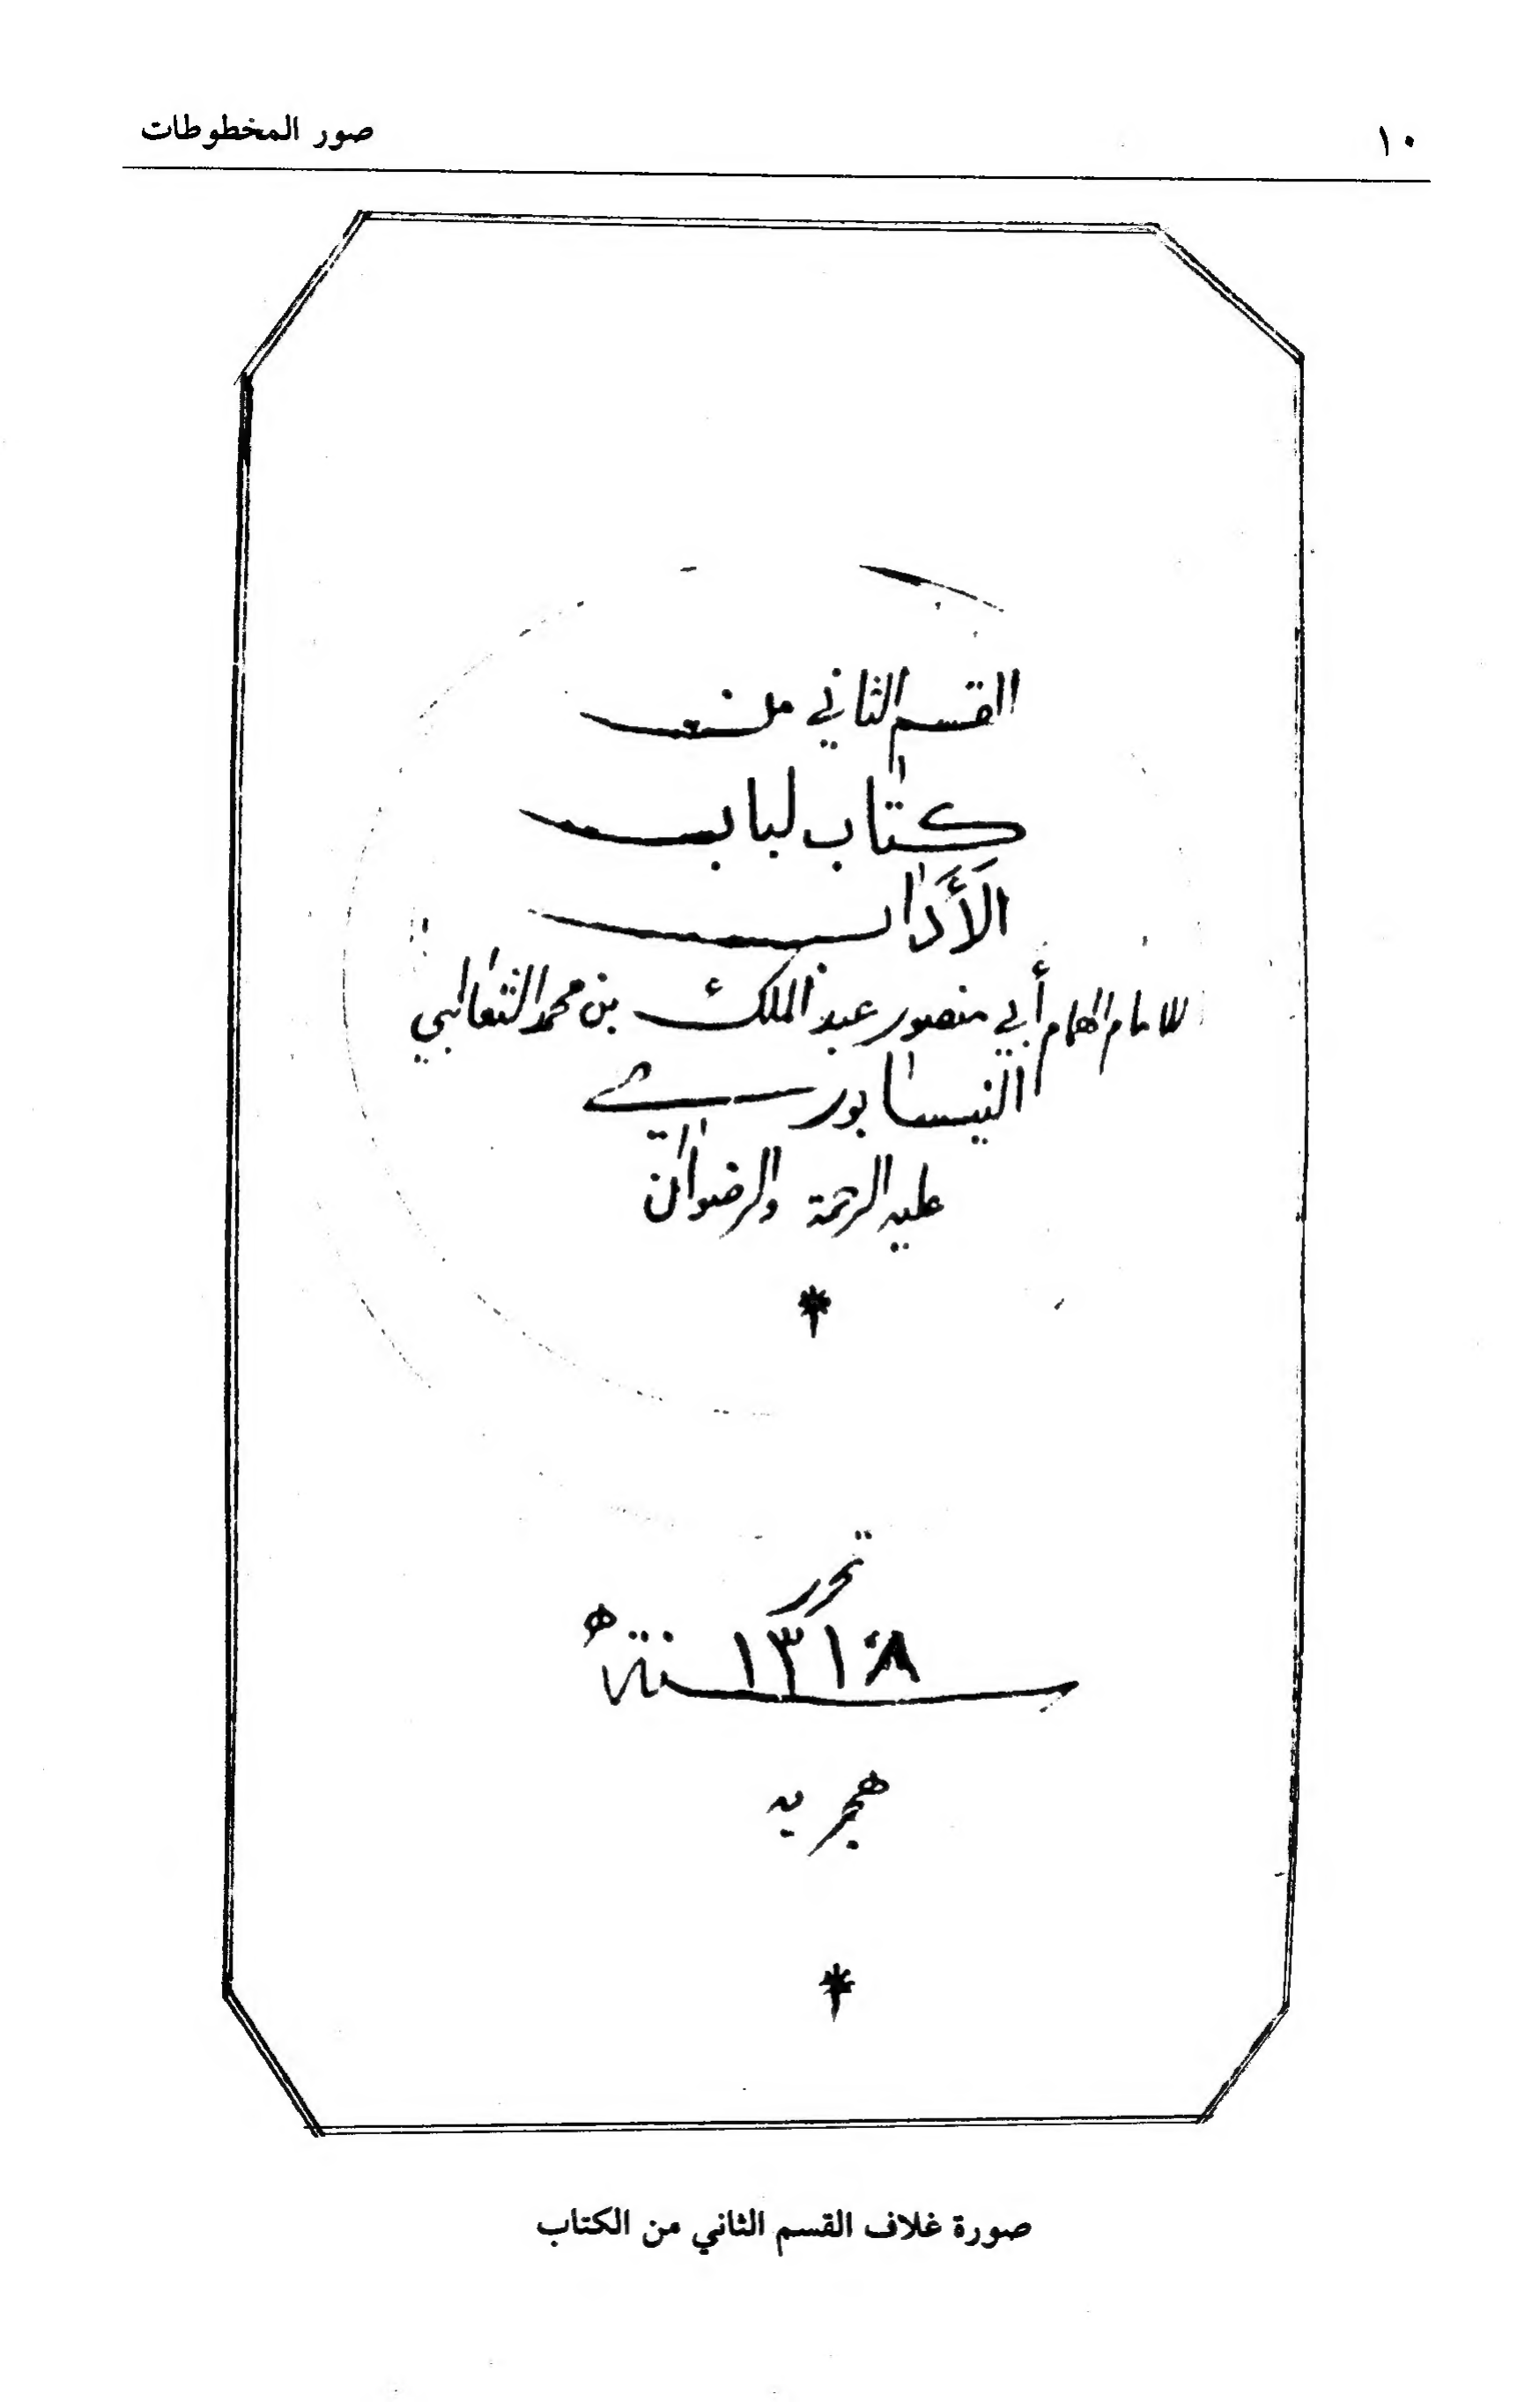 ١٠
صور المخطوطات
القسم الثاني من
كتاب لباب
الأَدَاب
للامام الهمام أبي منصور عبد الملك بن محمد الثعالبي
النيسابوري
عليه الرحمة والرضوان
تحرر
١٣١٨ سنة ه
هجريه
صورة غلاف القسم الثاني من الكتاب